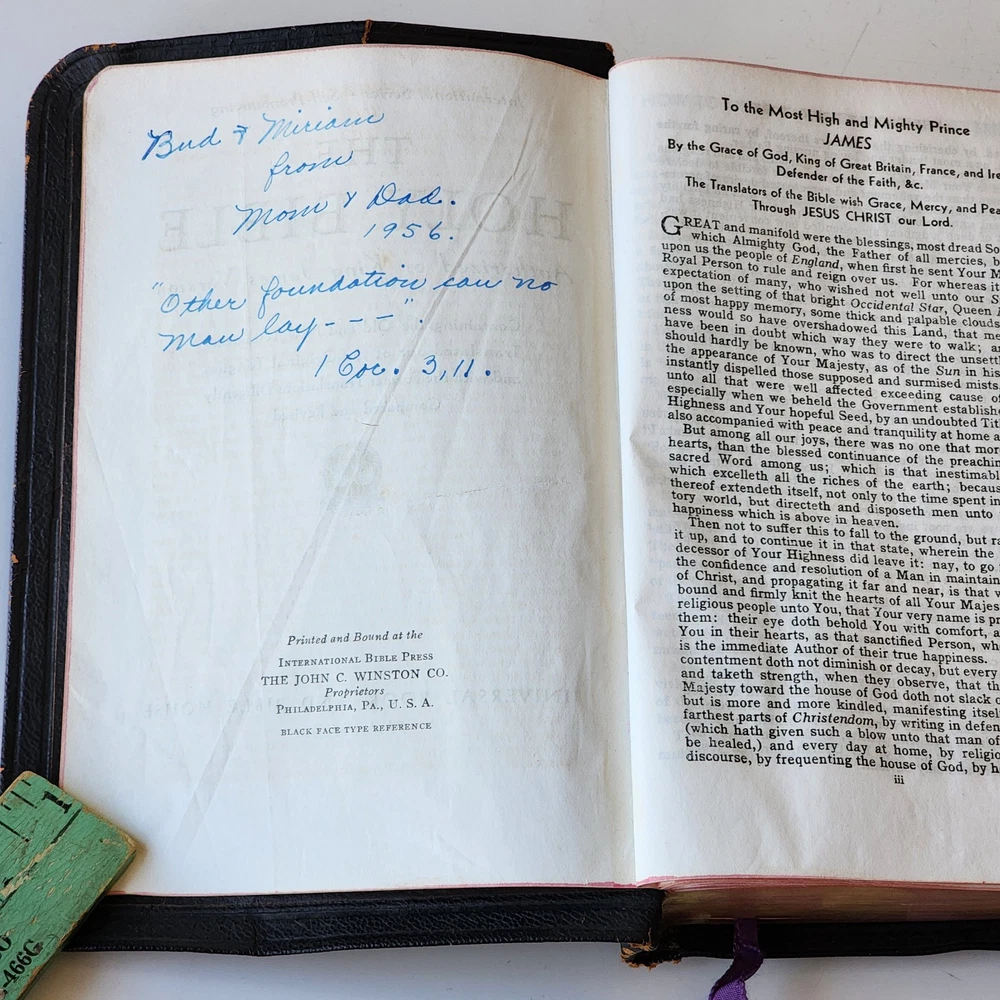 Bud & Miriam
from
Mom & Dad.
1956.
"Other foundation can no
man lay - - - ".
1 Cor. 3,11.
Printed and Bound at the
INTERNATIONAL BIBLE PRESS
THE JOHN C. WINSTON CO.
Proprietors
PHILADELPHIA, PA., U. S. A.
BLACK FACE TYPE REFERENCE
To the Most High and Mighty Prince
JAMES
By the Grace of God, King of Great Britain, France, and Ire
Defender of the Faith, &c.
The Translators of the Bible wish Grace, Mercy, and Pea
Through JESUS CHRIST our Lord.
GREAT and manifold were the blessings, most dread So
which Almighty God, the Father of all mercies, b
upon us the people of England, when first he sent Your M
Royal Person to rule and reign over us. For whereas it
expectation of many, who wished not well unto our S
upon the setting of that bright Occidental Star, Queen
of most happy memory, some thick and palpable clouds
ness would so have overshadowed this Land, that me
have been in doubt which way they were to walk; a
should hardly be known, who was to direct the unsettl
the appearance of Your Majesty, as of the Sun in his
instantly dispelled those supposed and surmised mists,
unto all that were well affected exceeding cause of
especially when we beheld the Government establishe
Highness and Your hopeful Seed, by an undoubted Titl
also accompanied with peace and tranquility at home a
But among all our joys, there was no one that mor
hearts, than the blessed continuance of the preachin
sacred Word among us; which is that inestimabl
which excelleth all the riches of the earth; becaus
thereof extendeth itself, not only to the time spent in
tory world, but directeth and disposeth men unto
happiness which is above in heaven.
Then not to suffer this to fall to the ground, but ra
it up, and to continue it in that state, wherein the
decessor of Your Highness did leave it: nay, to go
the confidence and resolution of a Man in maintain
of Christ, and propagating it far and near, is that w
bound and firmly knit the hearts of all Your Majes
religious people unto You, that Your very name is pr
them: their eye doth behold You with comfort, a
You in their hearts, as that sanctified Person, wh
is the immediate Author of their true happiness.
contentment doth not diminish or decay, but every
and taketh strength, when they observe, that th
Majesty toward the house of God doth not slack o
but is more and more kindled, manifesting itsel
farthest parts of Christendom, by writing in defen
(which hath given such a blow unto that man of
be healed,) and every day at home, by religio
discourse, by frequenting the house of God, by h
iii
1
466G